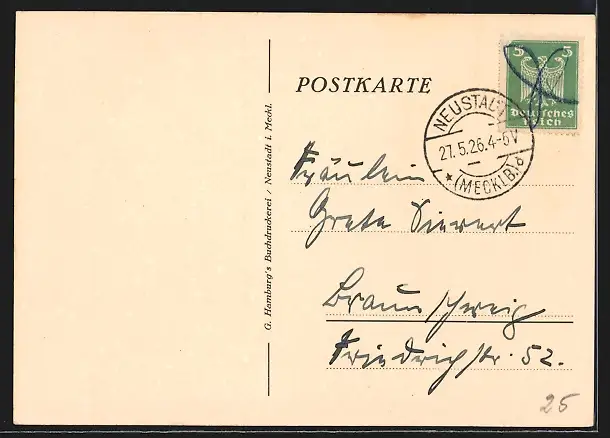 POSTKARTE
5 5
Deutsches
Reich
NEUSTADT
27.5.26.4-5V
* (MECKLB.) d
Fräulein
Grete Siewert
Braunschweig
Friedrichstr. 52.
G. Hamburg's Buchdruckerei / Neustadt i. Meckl.
25